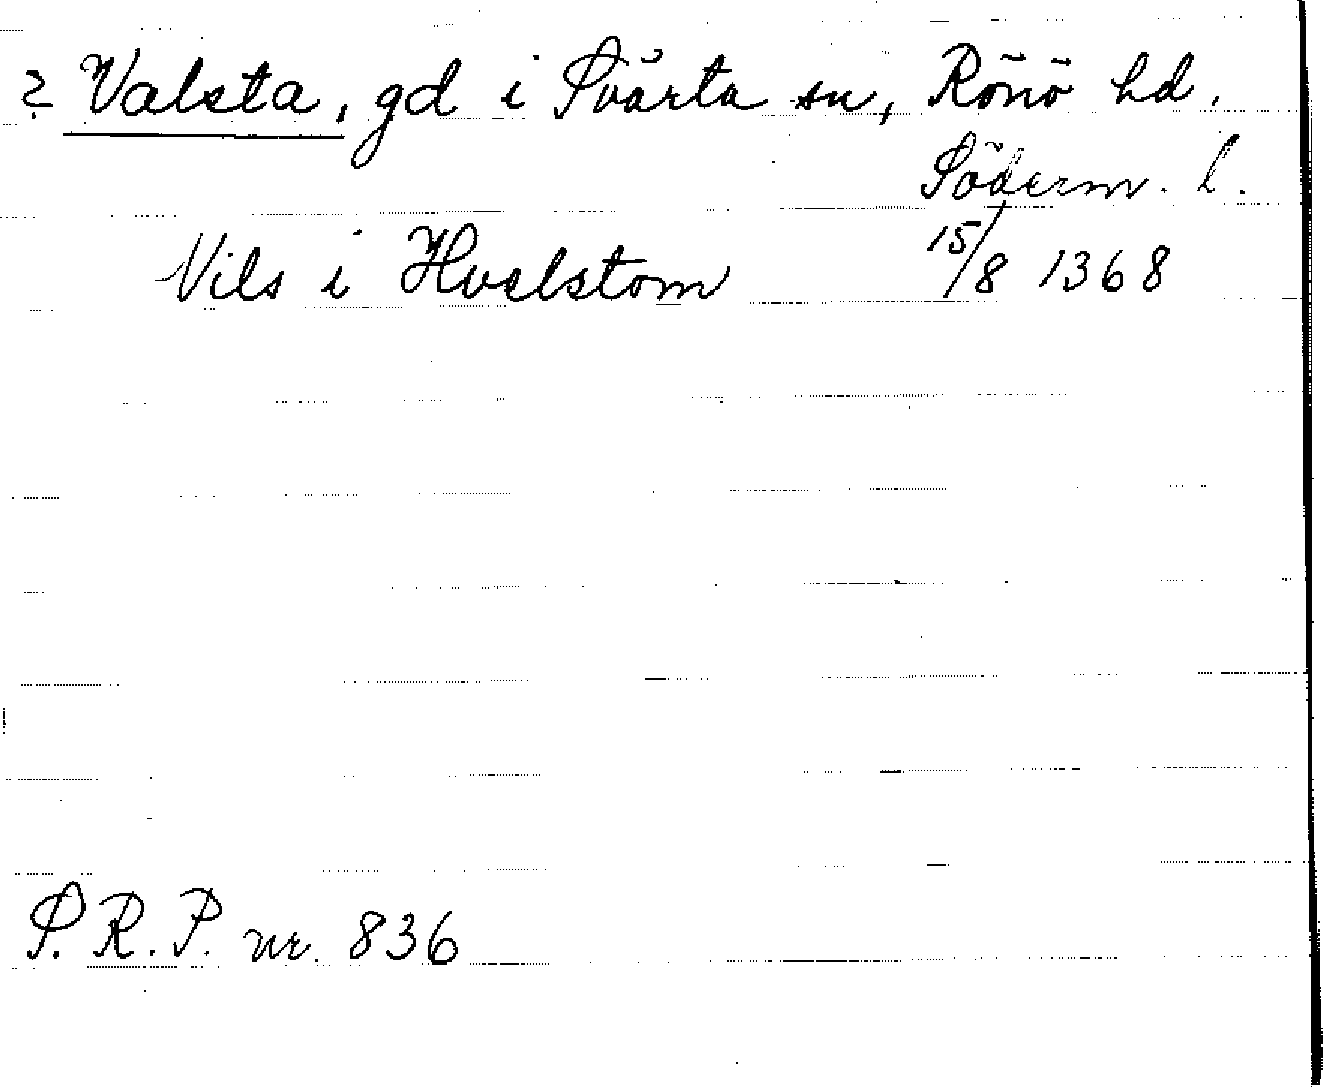 ? Valsta, gd i Svärta sn, Rönö hd.
Söderm. l.
Nils i Hvalstom 15/8 1368
S.R.P. nr. 836